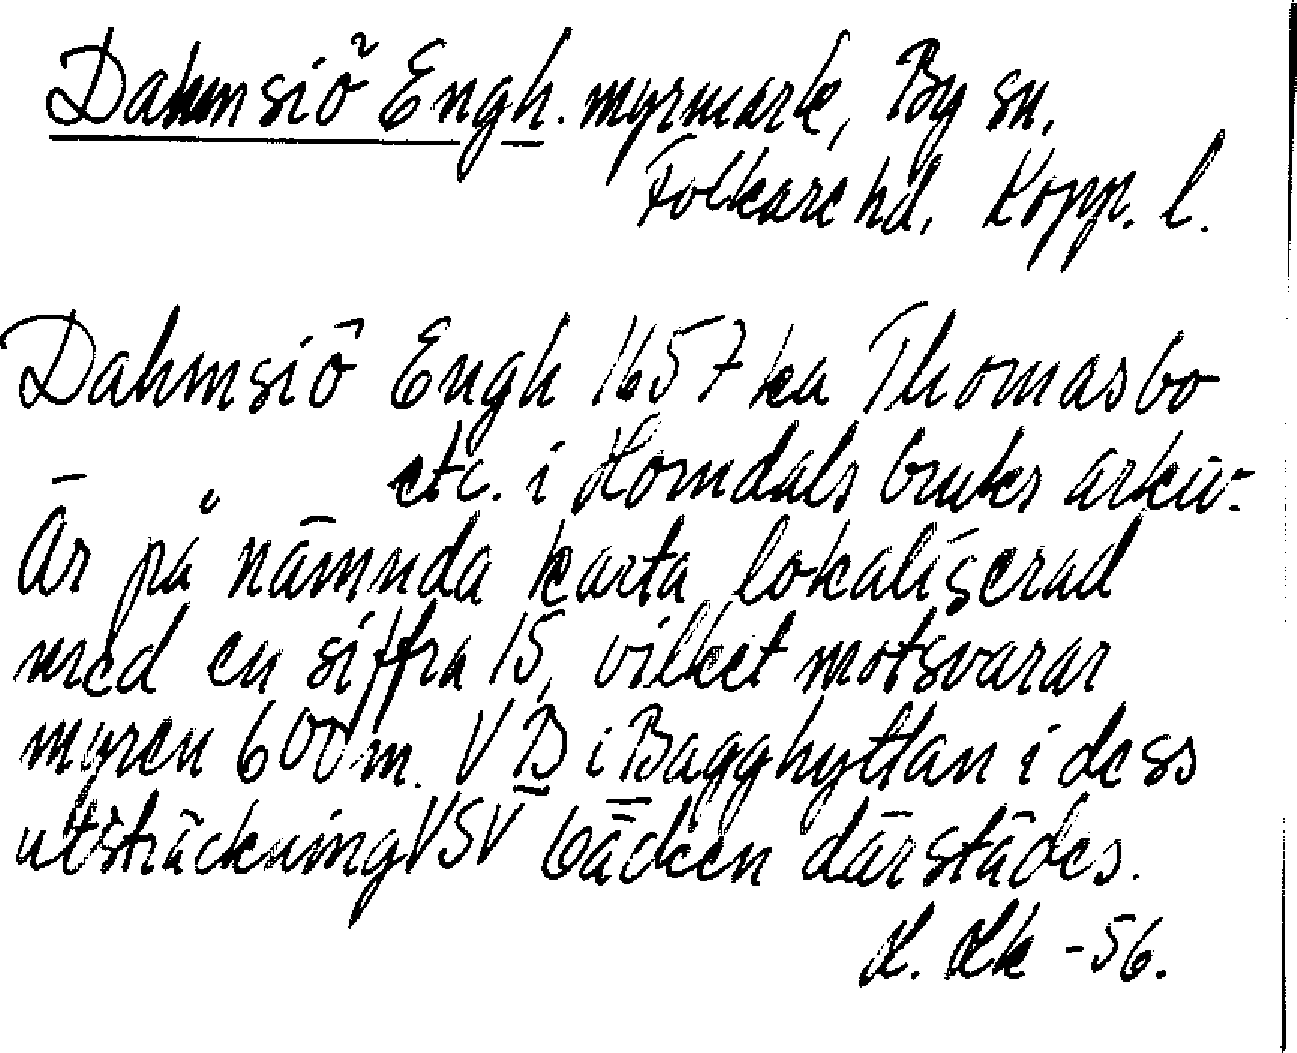 Dahmsiö Engh. myrmark, By sn,
Folkare hd, Kopp. l.
Dahmsiö Engh 1657 ka Thomasbo
etc. i Horndals bruks arkiv.
Är på nämnda karta lokaliserad
med en siffra 15, vilket motsvarar
myren 600 m. V B i Bagghyttan i dess
utsträckning VSV bäcken därstädes.
-56.